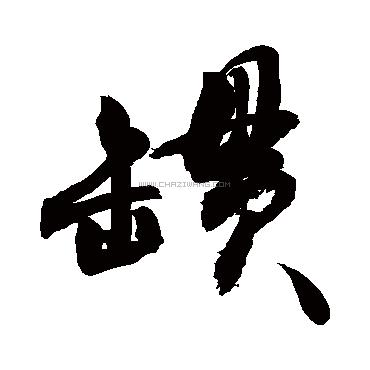 罆
WWW.CHAZIWANG.COM